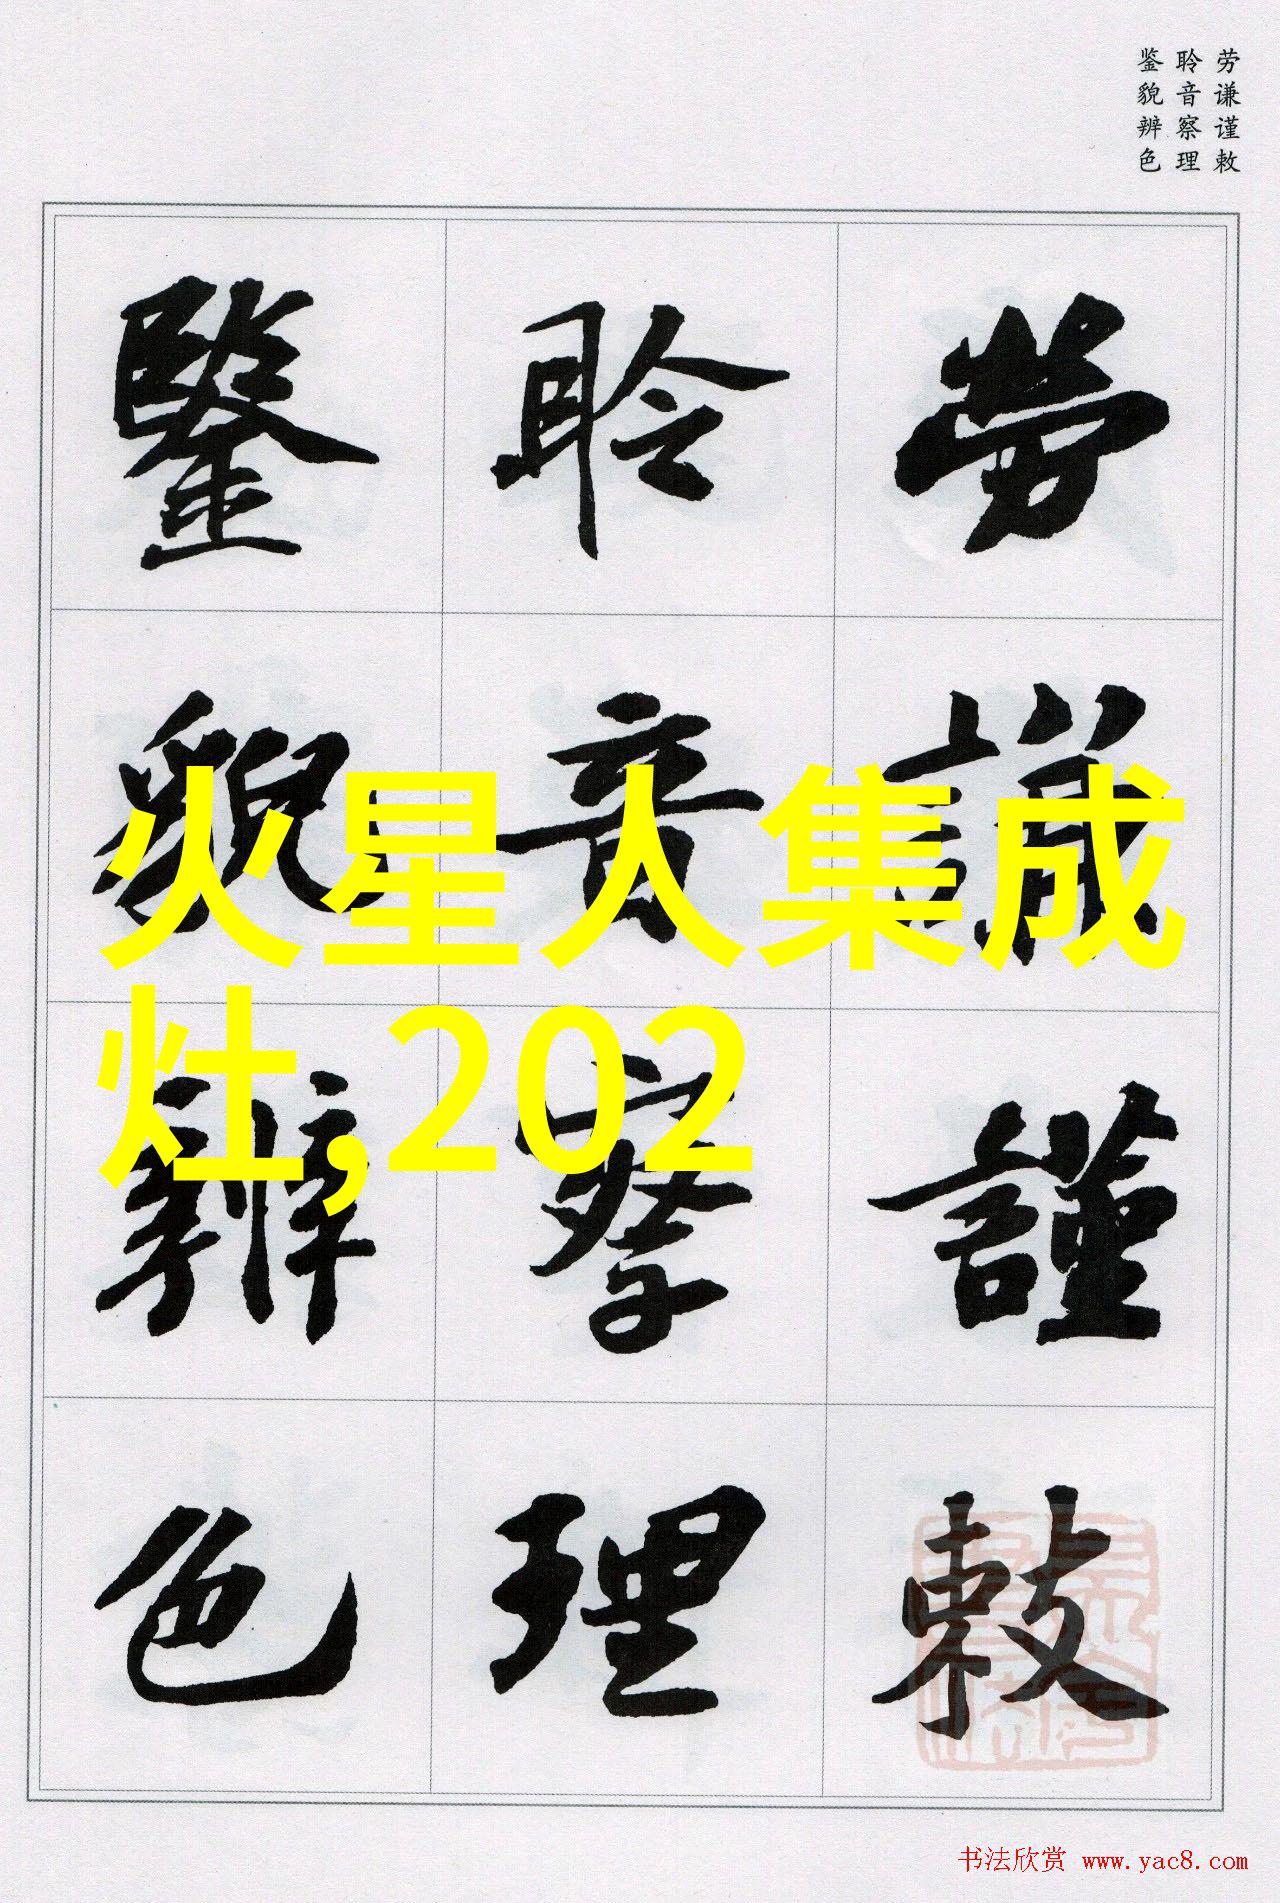 劳谦谨敕
聆音察理
鉴貌辨色
劳謙謹敕
聆音察理
鑒貌辨色
火星人集成
灶,202
书法欣赏 www.yac8.com